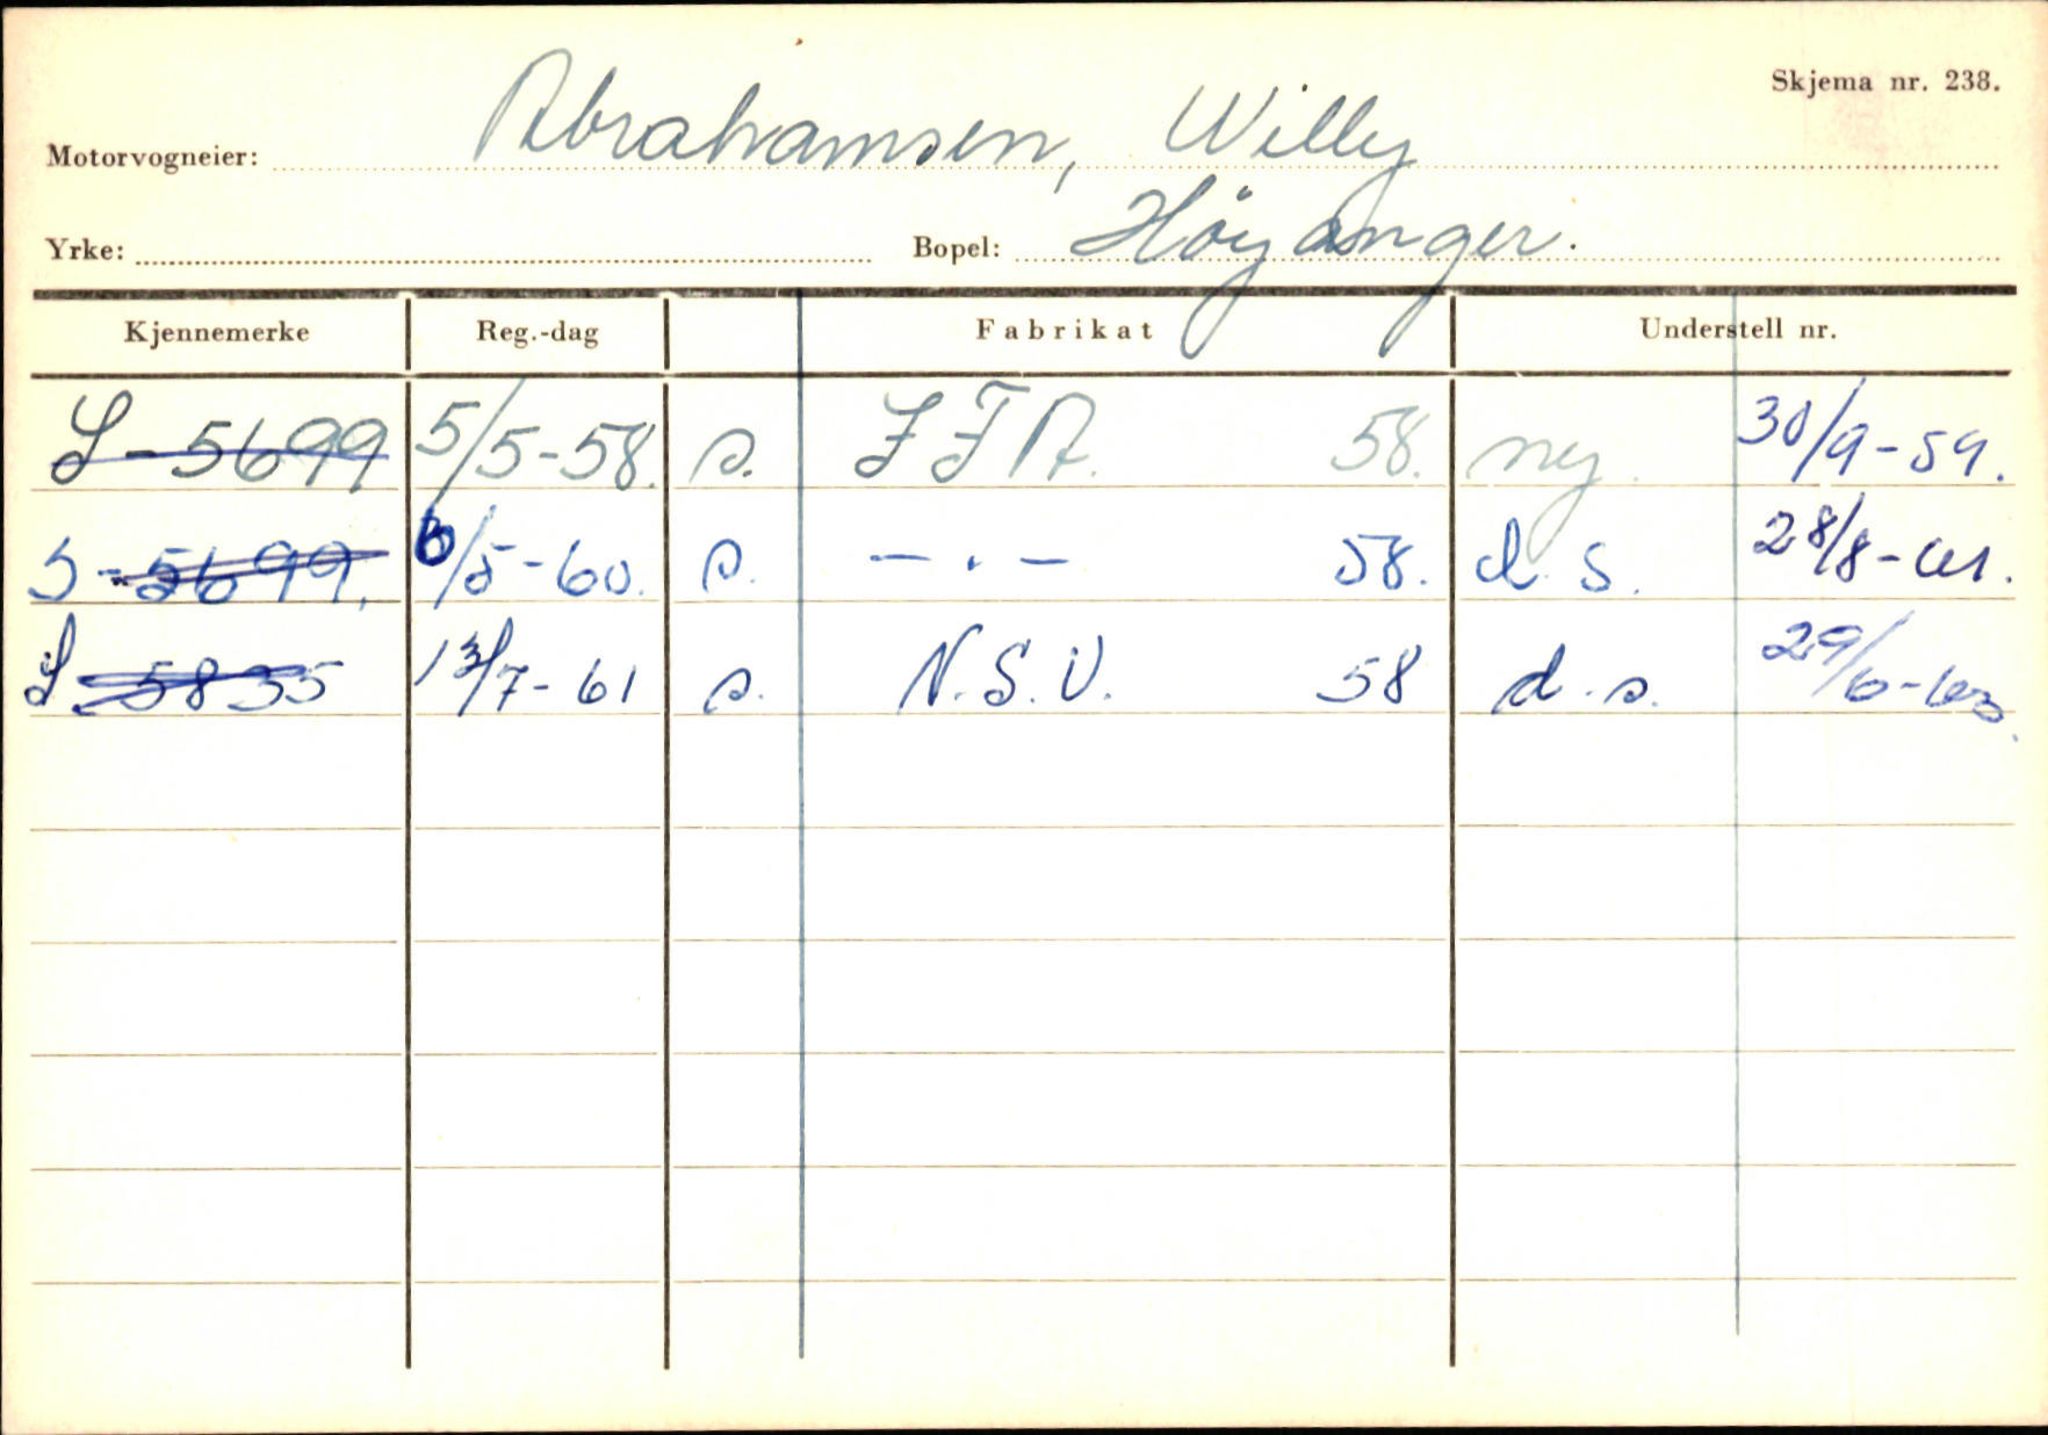 Skjema nr. 238.
Motorvogneier: Abrahamsen, Willy
Yrke: Bopel: Höyanger.
Kjennemerke Reg.-dag Fabrikat Understell nr.
S-5699 5/5-58. s. I F A. 58. ny. 30/9-59.
S-5699. 6/5-60. s. — . — 58. d. s. 28/8-61.
S-5835 13/7-61 s. N.S.U. 58 d.s. 29/6-63.